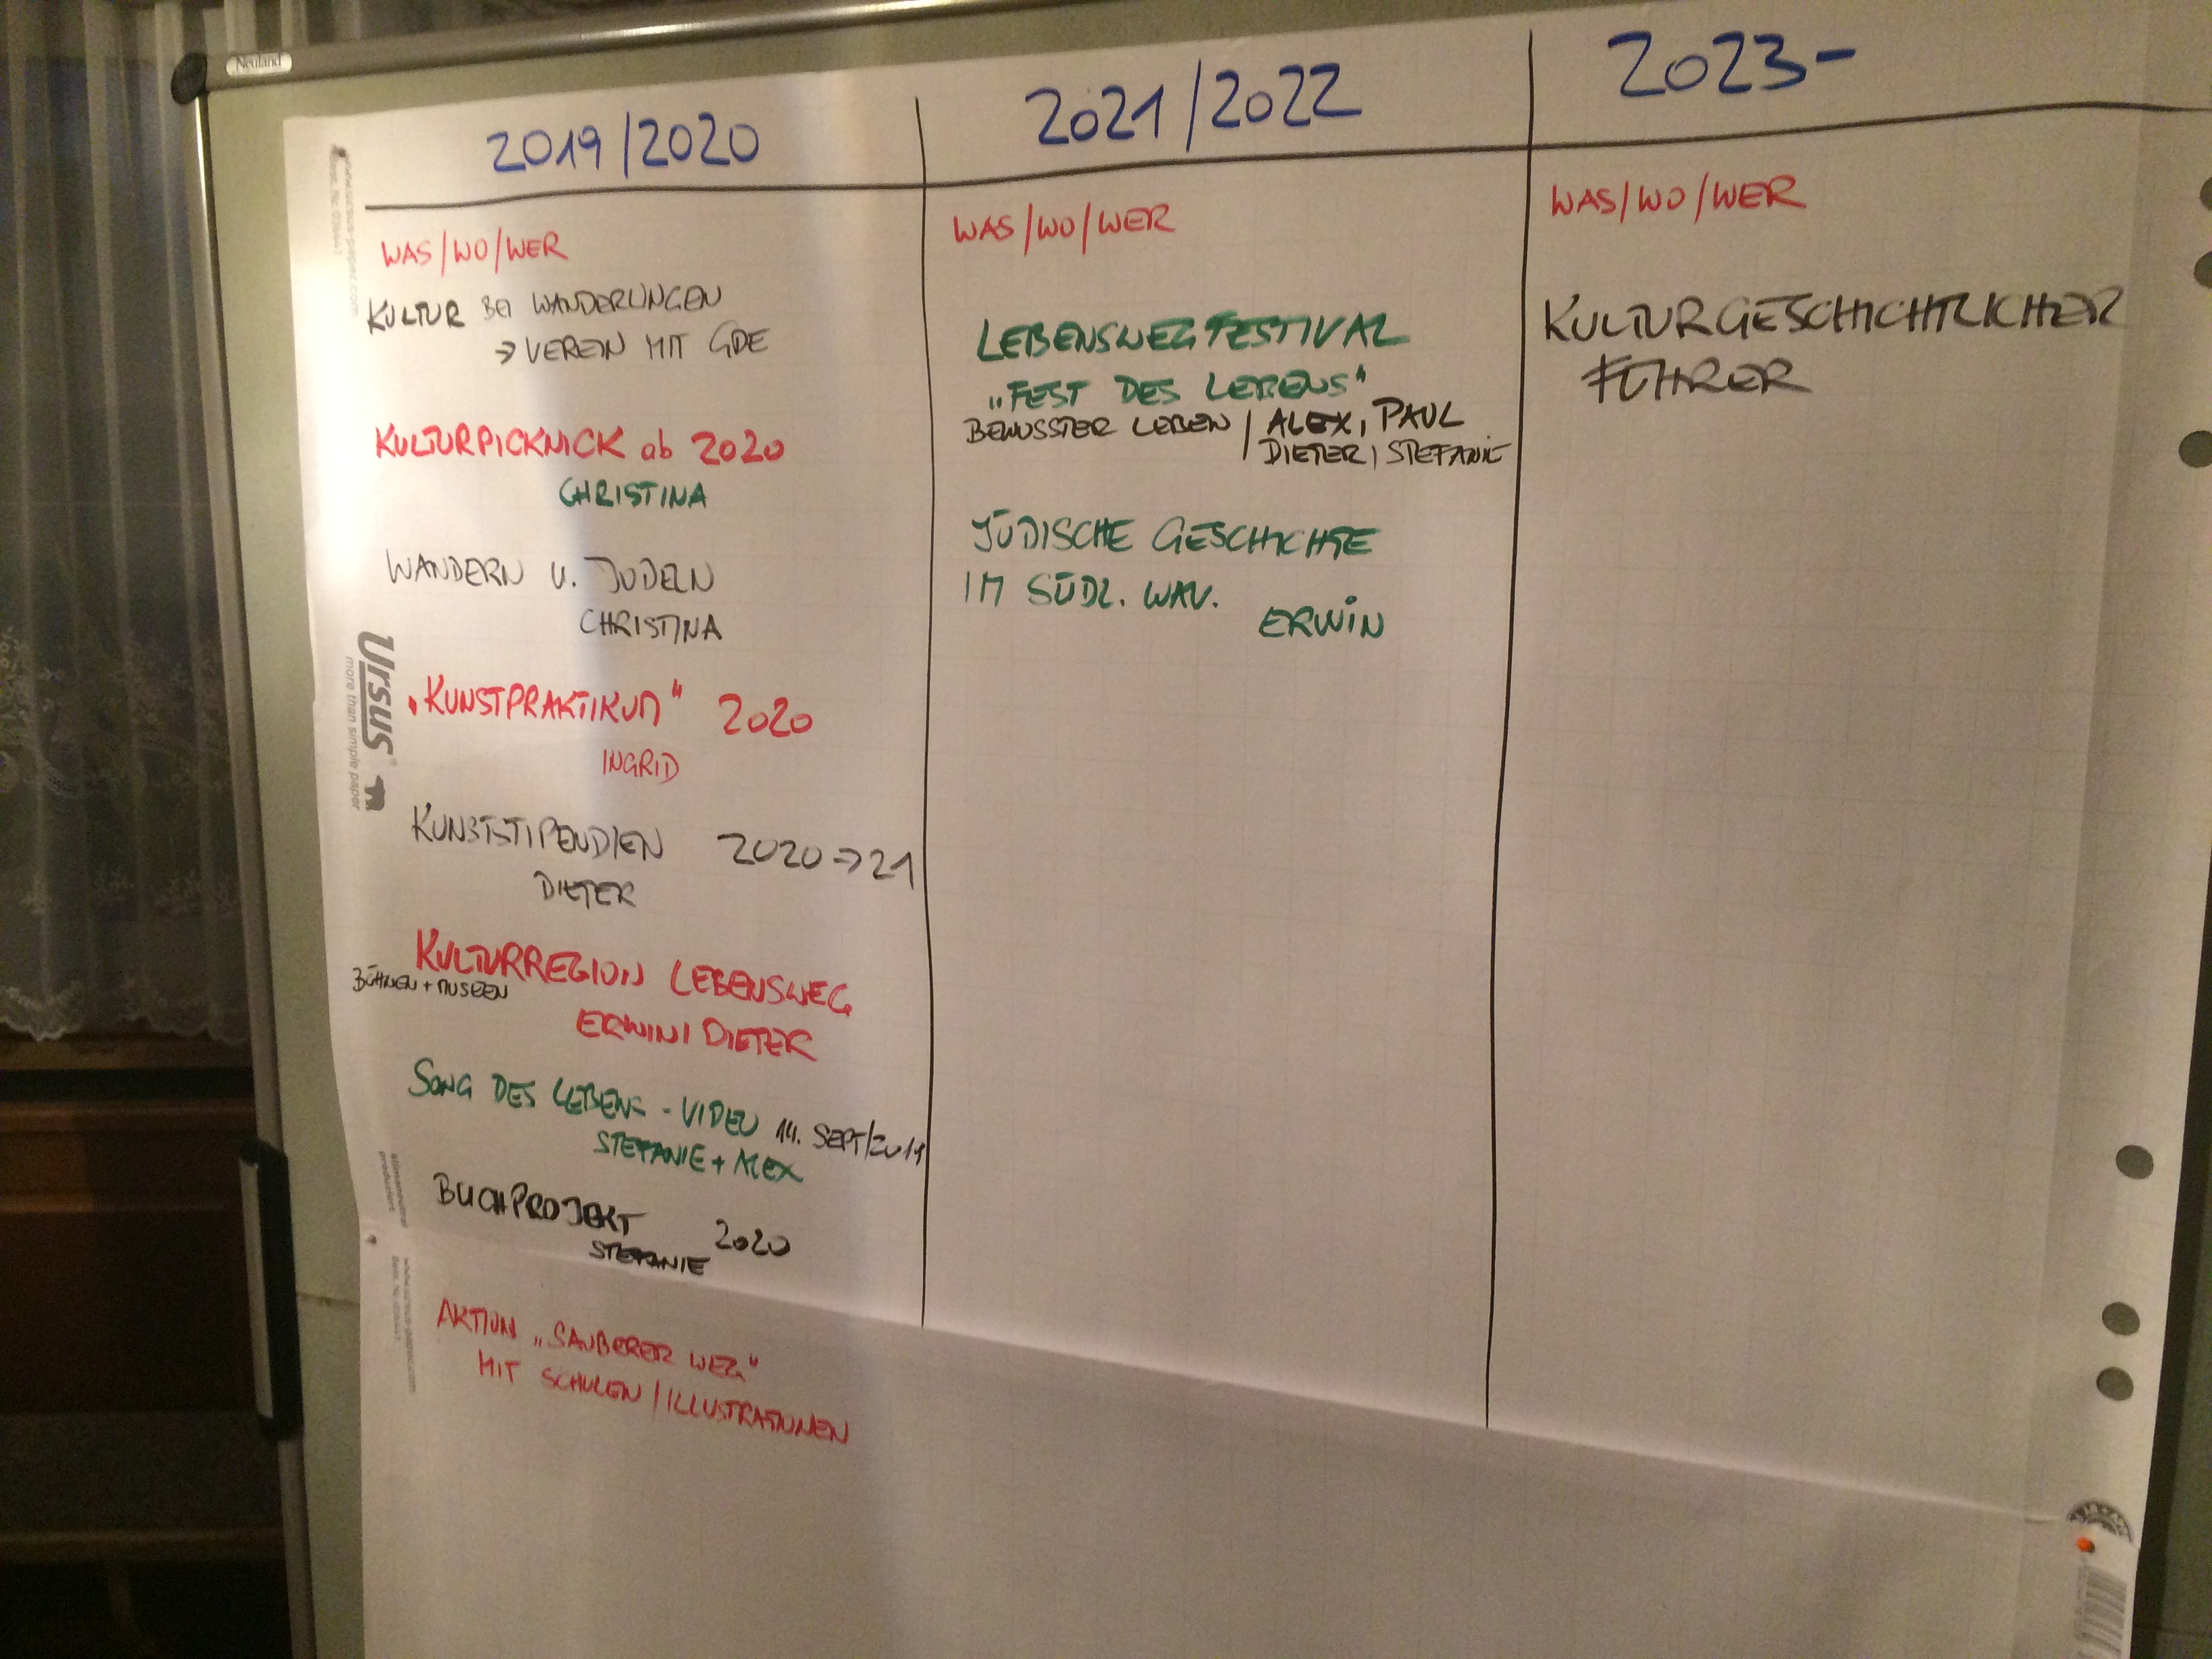 Neuland
2019/2020
WAS/WO/WER
KULTUR BEI WANDERUNGEN
→ VEREIN MIT GDE
KULTURPICKNICK ab 2020
CHRISTINA
WANDERN U. JODELN
CHRISTINA
„KUNSTPRAKTIKUM" 2020
INGRID
KUNSTSTIPENDIEN 2020 → 21
DIETER
KULTURREGION LEBENSWEG
BÜHNEN + MUSEEN
ERWIN / DIETER
SONG DES LEBENS - VIDEO 14. SEPT/2019
STEFANIE + ALEX
BUCHPROJEKT 2020
STEFANIE
AKTION „SAUBERER WEG"
MIT SCHULEN / ILLUSTRATIONEN
2021/2022
WAS/WO/WER
LEBENSWEGFESTIVAL
„FEST DES LEBENS"
BEWUSSTER LEBEN / ALEX, PAUL
DIETER, STEFANIE
JÜDISCHE GESCHICHTE
IM SÜDL. WAV.
ERWIN
2023-
WAS/WO/WER
KULTURGESCHICHTLICHER
FÜHRER
Ursus
more than simple paper